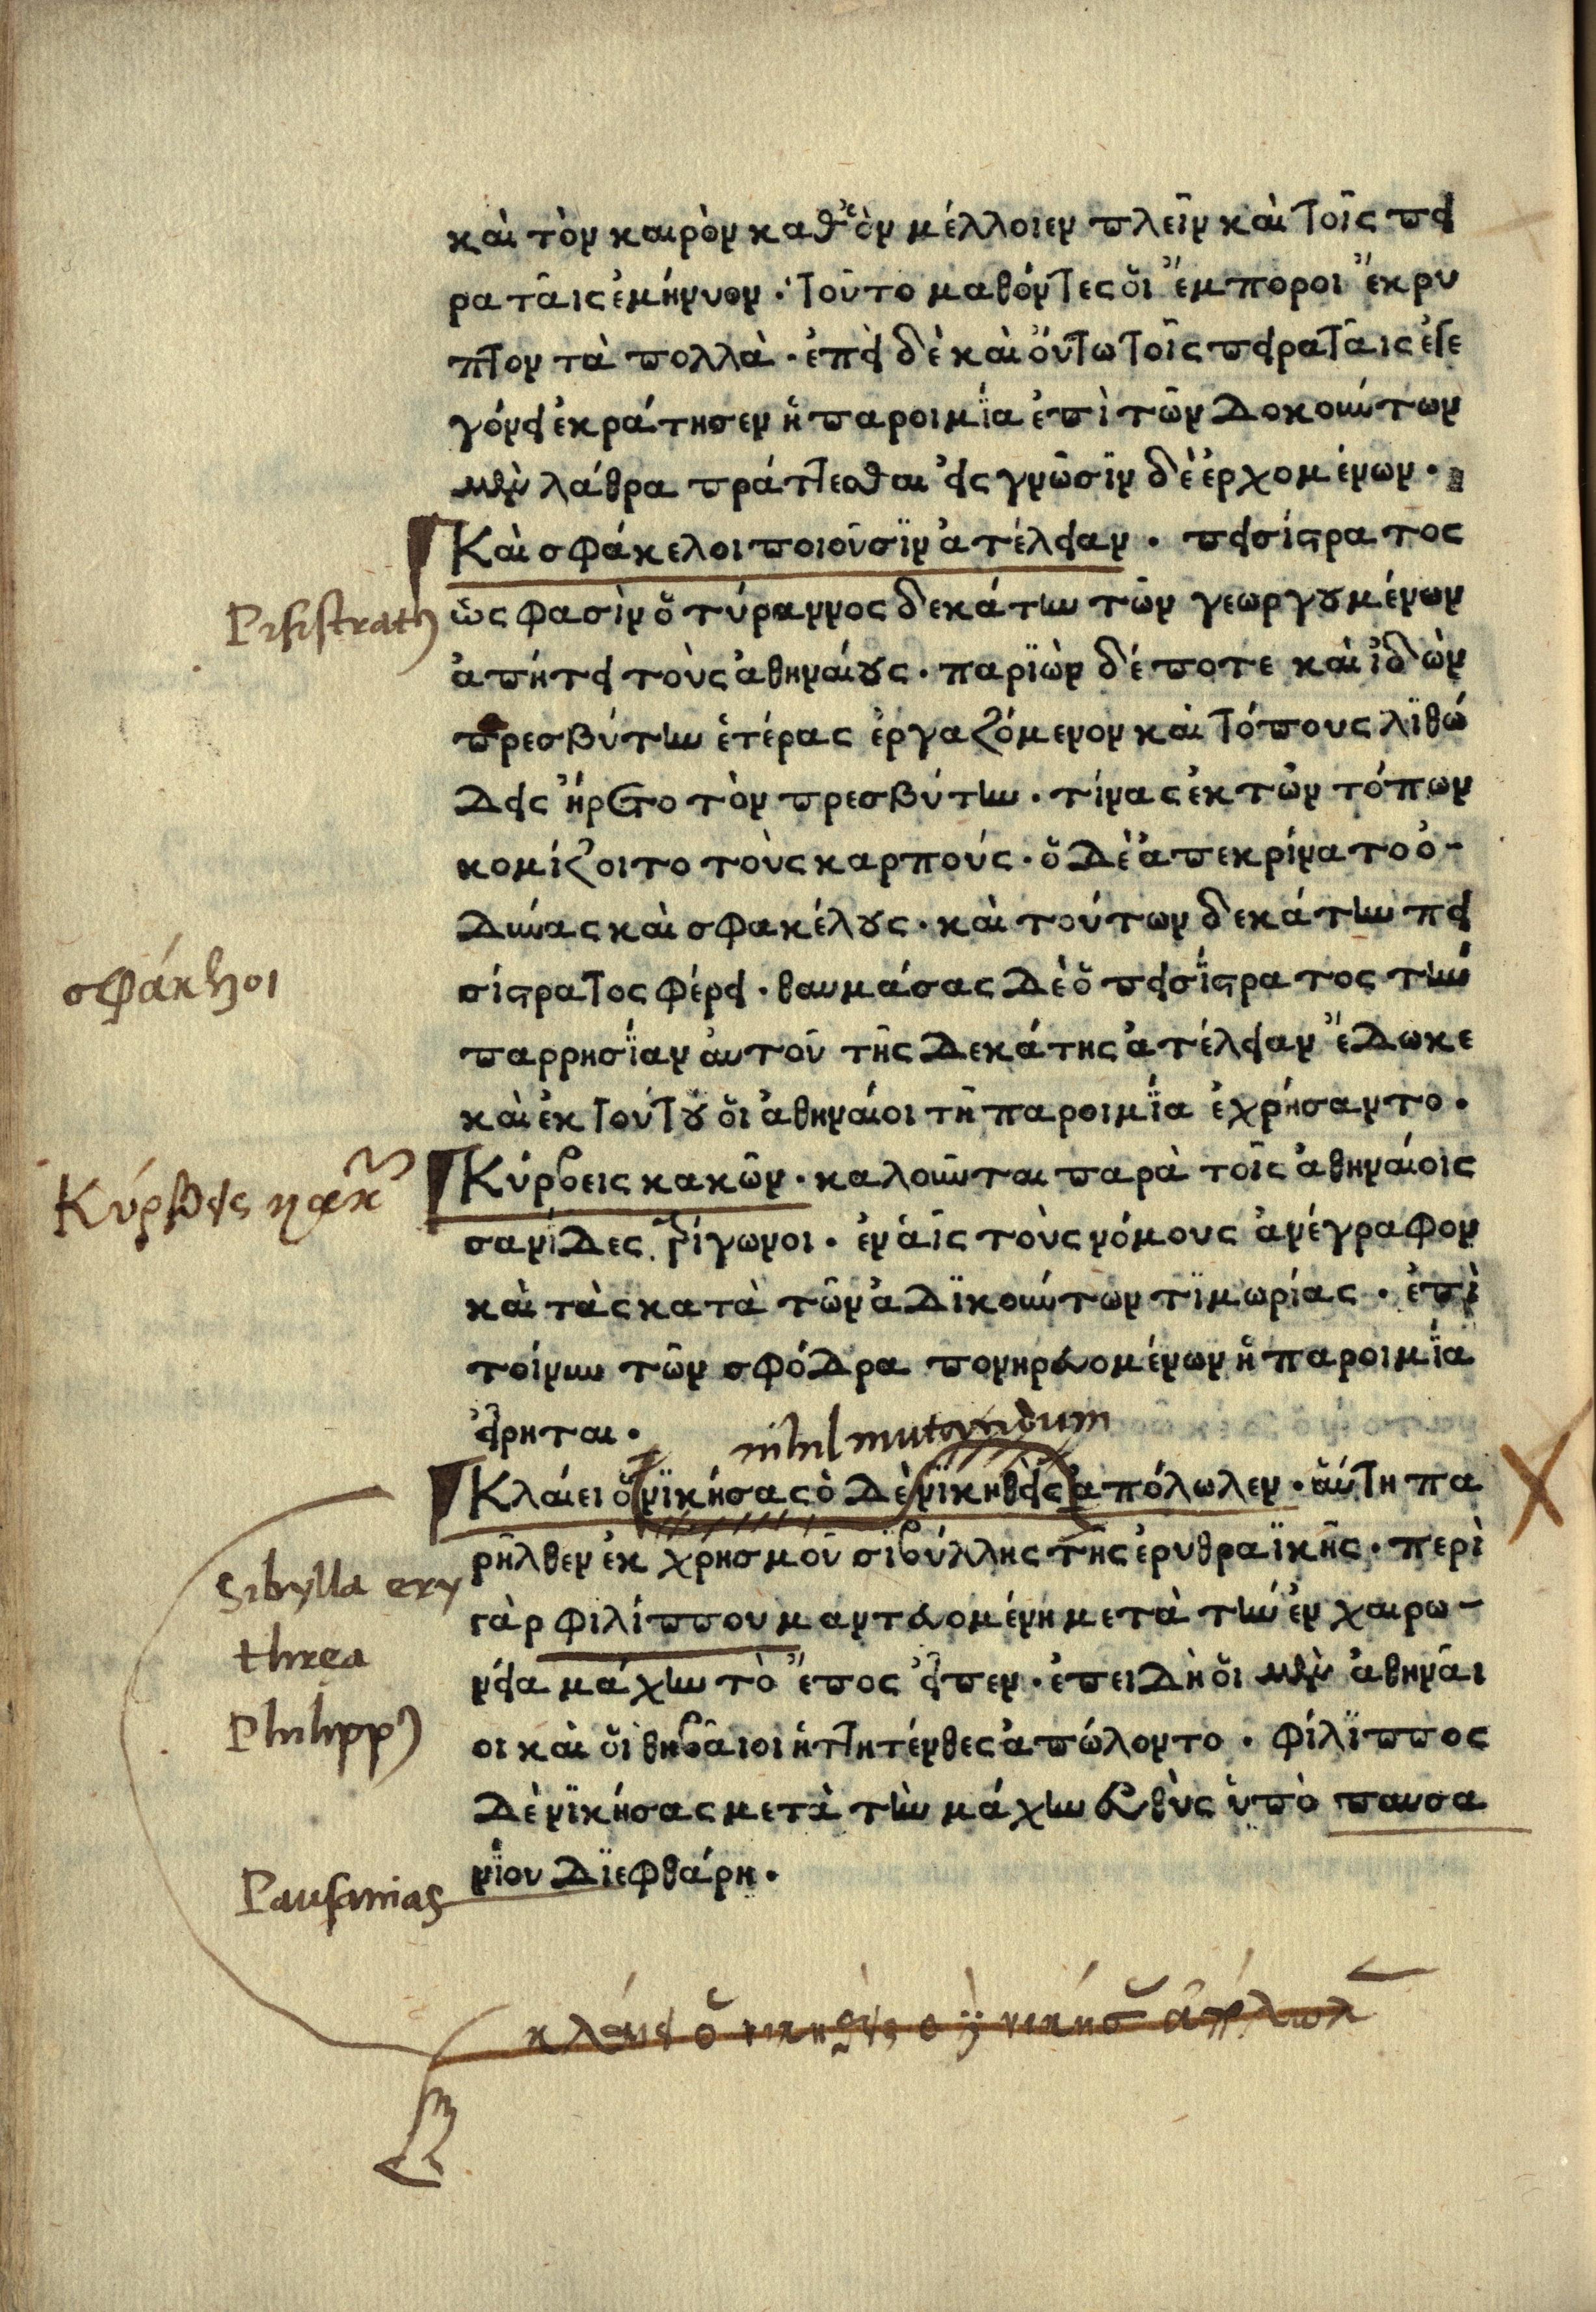 κὰι τὸν καιρὸν καθ' ὃν μέλλοιεν πλεῖν κὰι τοῖς πει
ραταῖς ἐμήνυον. τοῦτο μαθόντες ὅι ἔμποροι ἔκρυ
πτον τὰ πολλὰ. ἐπεὶ δὲ κὰι ὅυτω τοῖς πειραταῖς ἐγε
γόνει ἐκράτησεν ἡ παροιμία ἐπὶ τῶν δοκούντων
μὲν λάθρα πράττεσθαι εἰς γνῶσιν δὲ ἐρχομένων.
Κὰι σφάκελοι ποιοῦσιν ἀτέλειαν. πεισίστρατος
Pisistratus
ὥς φασὶν ὁ τύραννος δεκάτην τῶν γεωργουμένων
ἀπήτει τοὺς ἀθηναίους. παριὼν δέ ποτε κὰι ἰδὼν
πρεσβύτην ἑτέρας ἐργαζόμενον κὰι τόπους λιθώ
δεις ἤρετο τὸν πρεσβύτην. τίνας ἐκ τῶν τόπων
κομίζοιτο τοὺς καρπούς. ὁ δὲ ἀπεκρίνατο ὀ-
δύνας κὰι σφακέλους. κὰι τούτων δεκάτην πει
σφάκελοι
σίστρατος φέρει. θαυμάσας δὲ ὁ πεισίστρατος τὴν
παρρησίαν ἀυτοῦ τῆς δεκάτης ἀτέλειαν ἔδωκε
κὰι ἐκ τούτου ὅι ἀθηναίοι τῇ παροιμία ἐχρήσαντο.
Κύρβεις κακῶν
Κύρβεις κακῶν. καλοῦνται παρὰ τοῖς ἀθηναίοις
σανίδες τρίγωνοι. ἐν ἁῖς τοὺς νόμους ἀνέγραφον
κὰι τὰς κατὰ τῶν ἀδικούντων τιμωρίας. ἐπὶ
τοίνυν τῶν σφόδρα πονηρευομένων ἡ παροιμία
εἴρηται.
nihil mutandum
Κλαίει ὁ νικήσας ὁ δὲ νικηθεὶς ἀπόλωλεν. ἅυτη πα
ρῆλθεν ἐκ χρησμοῦ σιβύλλης τῆς ἐρυθραϊκῆς. περὶ
Sibylla ery
γὰρ φιλίππου μαντευομένη μετὰ τὴν ἐν χαιρω-
threa
νεία μάχην τὸ ἔπος εἶπεν. ἐπειδὴ ὅι μὲν ἀθηνᾶι
Philippus
οι κὰι ὅι θηβᾶιοι ἡττητένθες ἀπώλοντο. φίλιππος
δὲ νικήσας μετὰ τὴν μάχην εὐθὺς ὑπὸ παυσα
Pausanias
νίου διεφθάρη.
κλαίει ὁ νικηθεὶς ὁ δὲ νικήσας ἀπόλωλεν